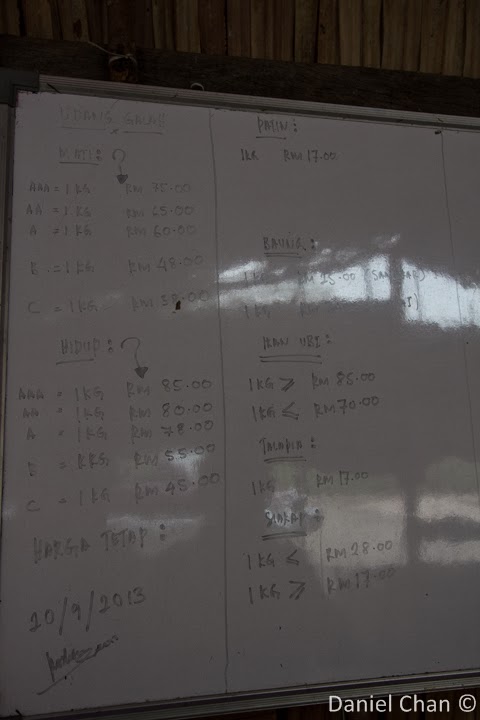 UDANG GALAH
MATI:
AAA = 1KG RM 75.00
AA = 1KG RM 65.00
A = 1KG RM 60.00
B = 1KG RM 48.00
C = 1KG RM
HIDUP:
AAA = 1KG RM 85.00
AA = 1KG RM 80.00
A = 1KG RM 78.00
B = KKG RM 55.00
C = 1KG RM 45.00
HARGA TETAP:
20/9/2013
PATIN:
1KG RM 17.00
BAUNG:
1KG RM 15.00
1KG RM
IKAN UBI:
1KG ≥ RM 85.00
1KG ≤ RM 70.00
TALAPIA:
1KG RM 17.00
SIAKAP:
1KG ≤ RM 28.00
1KG ≥ RM 17.00
Daniel Chan ©